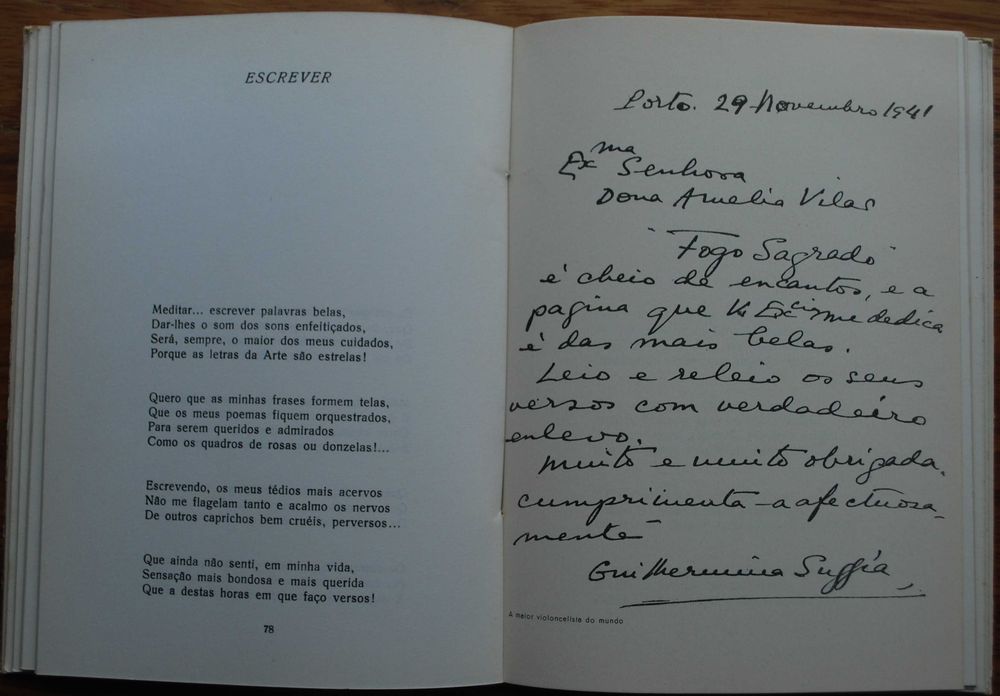 ESCREVER
Meditar... escrever palavras belas,
Dar-lhes o som dos sons enfeitiçados,
Será, sempre, o maior dos meus cuidados,
Porque as letras da Arte são estrelas!
Quero que as minhas frases formem telas,
Que os meus poemas fiquem orquestrados,
Para serem queridos e admirados
Como os quadros de rosas ou donzelas!...
Escrevendo, os meus tédios mais acervos
Não me flagelam tanto e acalmo os nervos
De outros caprichos bem cruéis, perversos...
Que ainda não senti, em minha vida,
Sensação mais bondosa e mais querida
Que a destas horas em que faço versos!
78
Porto. 29 Novembro 1941
Exma Senhora
Dona Amelia Vilar
"Fogo Sagrado"
é cheio de encantos, e a
pagina que V. Excia me dedica
é das mais belas.
Leio e releio os seus
versos com verdadeiro
enlevo.
Muito e muito obrigada.
cumprimenta-a afectuosa-
mente
Guilhermina Suggia
A maior violoncelista do mundo